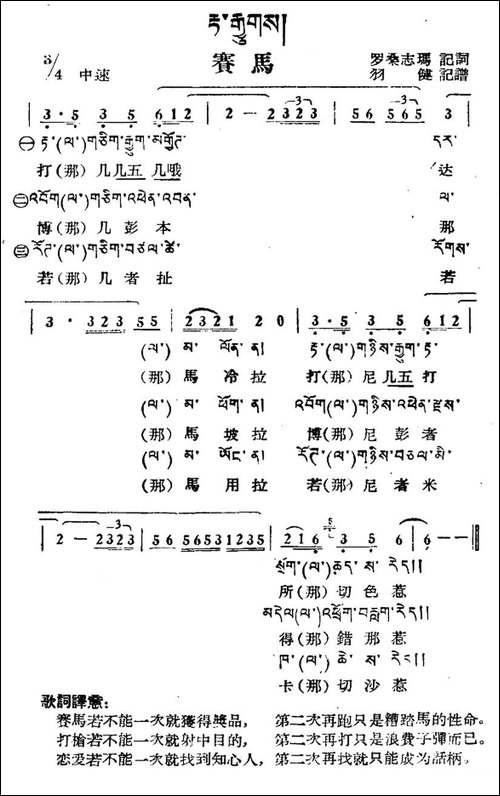 རྟ་རྒྱུགས།
賽馬
3/4 中速
罗桑志瑪 記詞
羽 健 記譜
| 3·5 3 5 6 1 2 | 2 — 2 3 2 3 | 5 6 5 6 5 3 |
㊀ རྟ་(ལ་)གཅིག་རྒྱུག་མ་གྱོད་ དར་
打(那)几几五几哦 达
㊁ འབོག(ལ་)གཅིག་འཕེན་འབན་ ལ་
博(那)几彭本 那
㊂ རོད་(ལ་)གཅིག་བཙལ་ཚེ་ རོགས་
若(那)几者扯 若
| 3 · 3 2 3 5 5 | 2 3 2 1 2 0 | 3·5 3 5 6 1 2 |
(ལ་) མ་ ལོན་ ན། རྟ་(ལ་)གཉིས་རྒྱུག་རྟ་
(那)馬冷拉 打(那)尼几五打
(ལ་) མ་ ཕོག་ ན། འབོག(ལ་)གཉིས་འཕེན་རྫས་
(那)馬坡拉 博(那)尼彭者
(ལ་) མ་ ཡོང་ ན། རོད་(ལ་)གཉིས་བཙལ་མི་
(那)馬用拉 若(那)尼者米
| 2 — 2 3 2 3 | 5 6 5 6 5 3 1 2 3 5 | 2 1 6 5 3 5 6 | 6 — — ‖
སྲོག་(ལ་)ཆད་ ས་ རེད།།
所(那)切色惹
མདེལ(ལ་)འཕྲོག་བརླག་རེད།།
得(那)錯那惹
ཁ་(ལ་) ཆེ་ ས་ རེད།།
卡(那)切沙惹
歌詞譯意:
賽馬若不能一次就獲得獎品, 第二次再跑只是糟踏馬的性命。
打搶若不能一次就射中目的, 第二次再打只是浪費子彈而已。
恋爱若不能一次就找到知心人, 第二次再找就只能成为話柄。